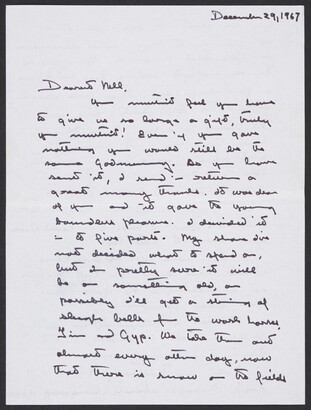 December 29, 1967
Dearest Nell,
You mustn't feel you have
to give us so large a gift, truly
you mustn't! Even if you gave
nothing you would still be the
same Godmummy. As you have
sent it, I send in return a
great many thanks. It was dear
of you and it gave the young
boundless pleasure. I divided it
in to five parts. My share I've
not decided what to spend on,
but I'm pretty sure it will
be on something old, or
possibly I'll get a string of
sleigh bells for the work horses,
Tim and Gyp. We take them out
almost every other day, now
that there is snow on the fields